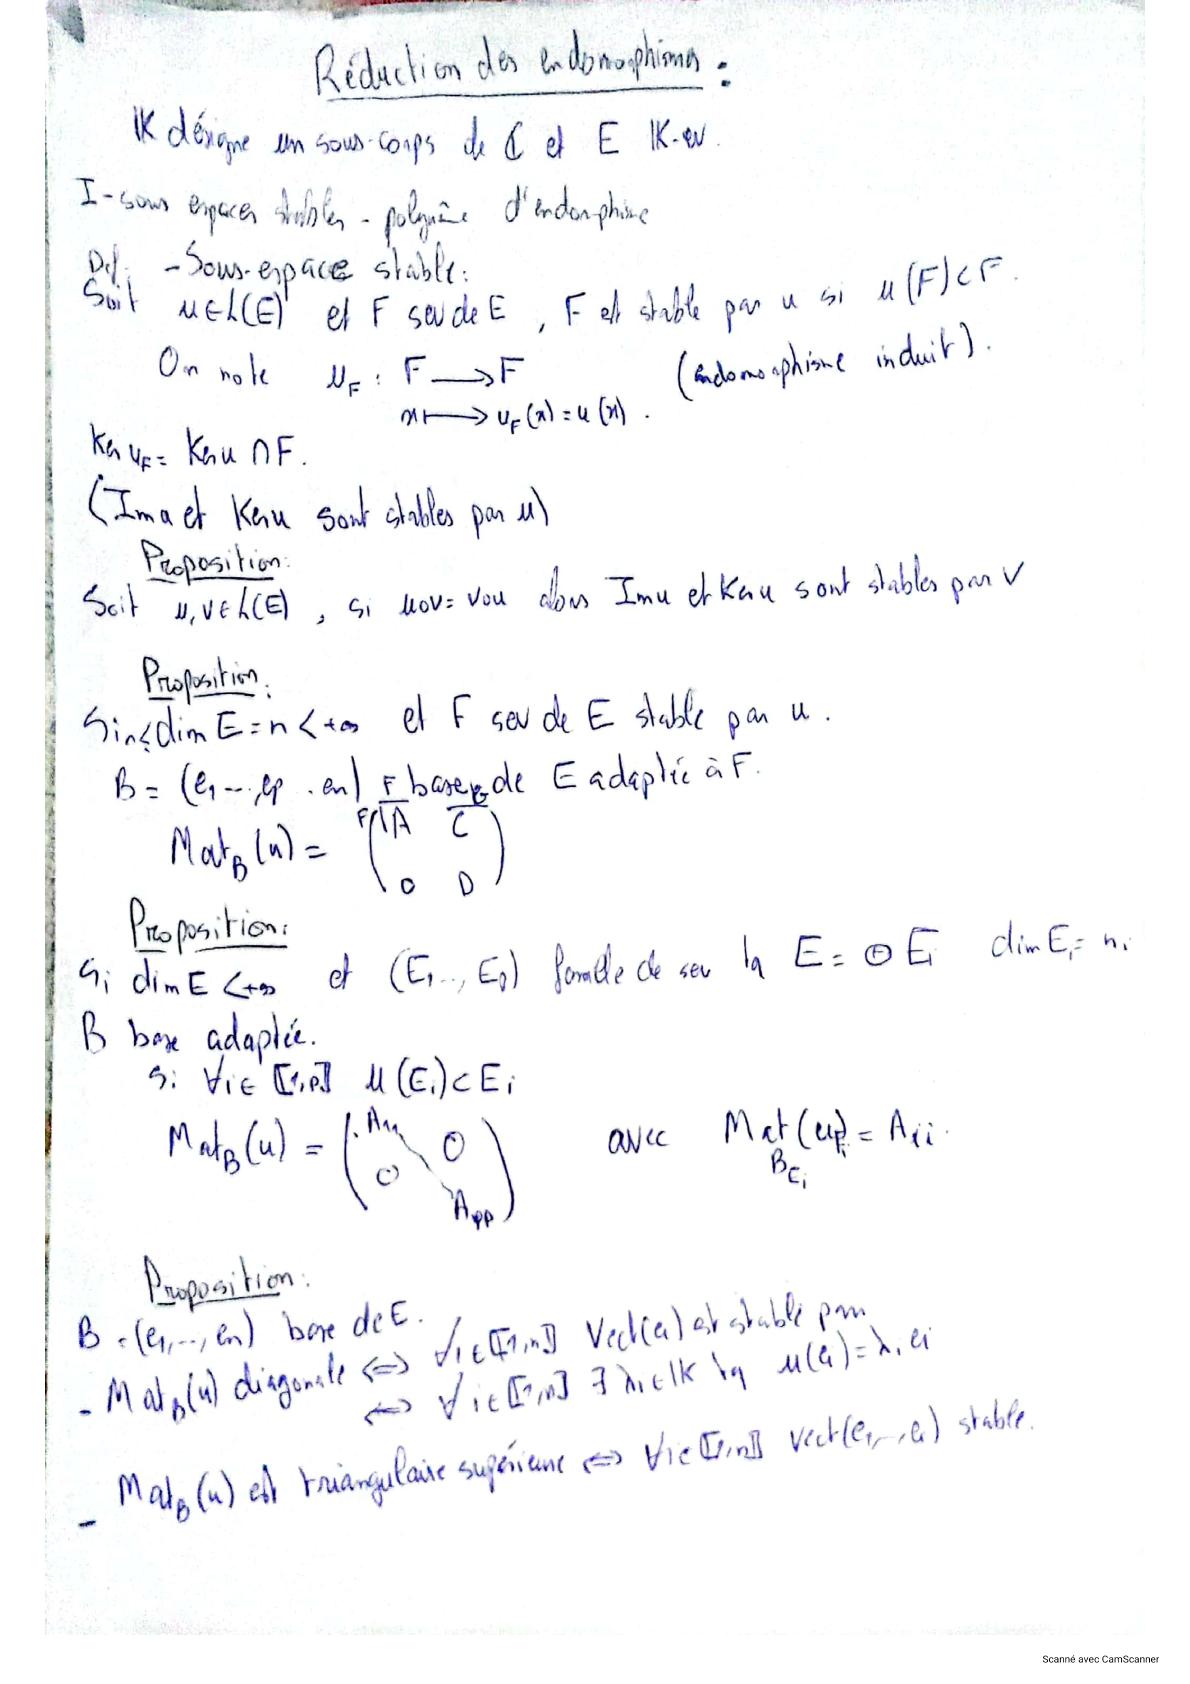 Réduction des endomorphismes :
IK désigne un sous-corps de ℂ et E IK-ev.
I-sous espaces stables - polynôme d'endomorphisme
Def. - Sous-espace stable :
Soit u∈L(E) et F sev de E , F est stable par u si u(F)⊂F.
On note u_F : F ⟶ F (endomorphisme induit).
x ⟼ u_F(x) = u(x) .
Ker u_F = Ker u ∩ F.
(Im u et Ker u sont stables par u)
Proposition:
Soit u,v∈L(E) , si uov = vou alors Im u et Ker u sont stables par v
Proposition:
Si 1≤dim E = n <+∞ et F sev de E stable par u .
B = (e1 --, ep . en) base de E adaptée à F.
Mat_B(u) = ( A C
0 D )
Proposition:
Si dim E <+∞ et (E1.., Ep) famille de sev tq E = ⊕ Ei dim Ei = ni
B base adaptée.
Si ∀i∈ ⟦1,p⟧ u(Ei)⊂Ei
Mat_B(u) = ( A11 0
0 App ) avec Mat (u ) = Aii .
Proposition:
B = (e1,..., en) base de E.
- Mat_B(u) diagonale ⟺ ∀i∈⟦1,n⟧ Vect(ei) est stable par
⟺ ∀i∈⟦1,n⟧ ∃ λi∈IK tq u(ei) = λi ei
- Mat_B(u) est triangulaire supérieure ⟺ ∀i∈⟦1,n⟧ Vect(e1,..,ei) stable.
Scanné avec CamScanner